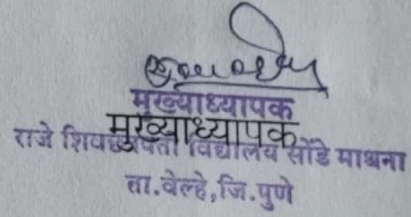 मुख्याध्यापक
मुख्याध्यापक
राजे शिवछत्रपती विद्यालय सोंडे माथना
ता.वेल्हे,जि.पुणे